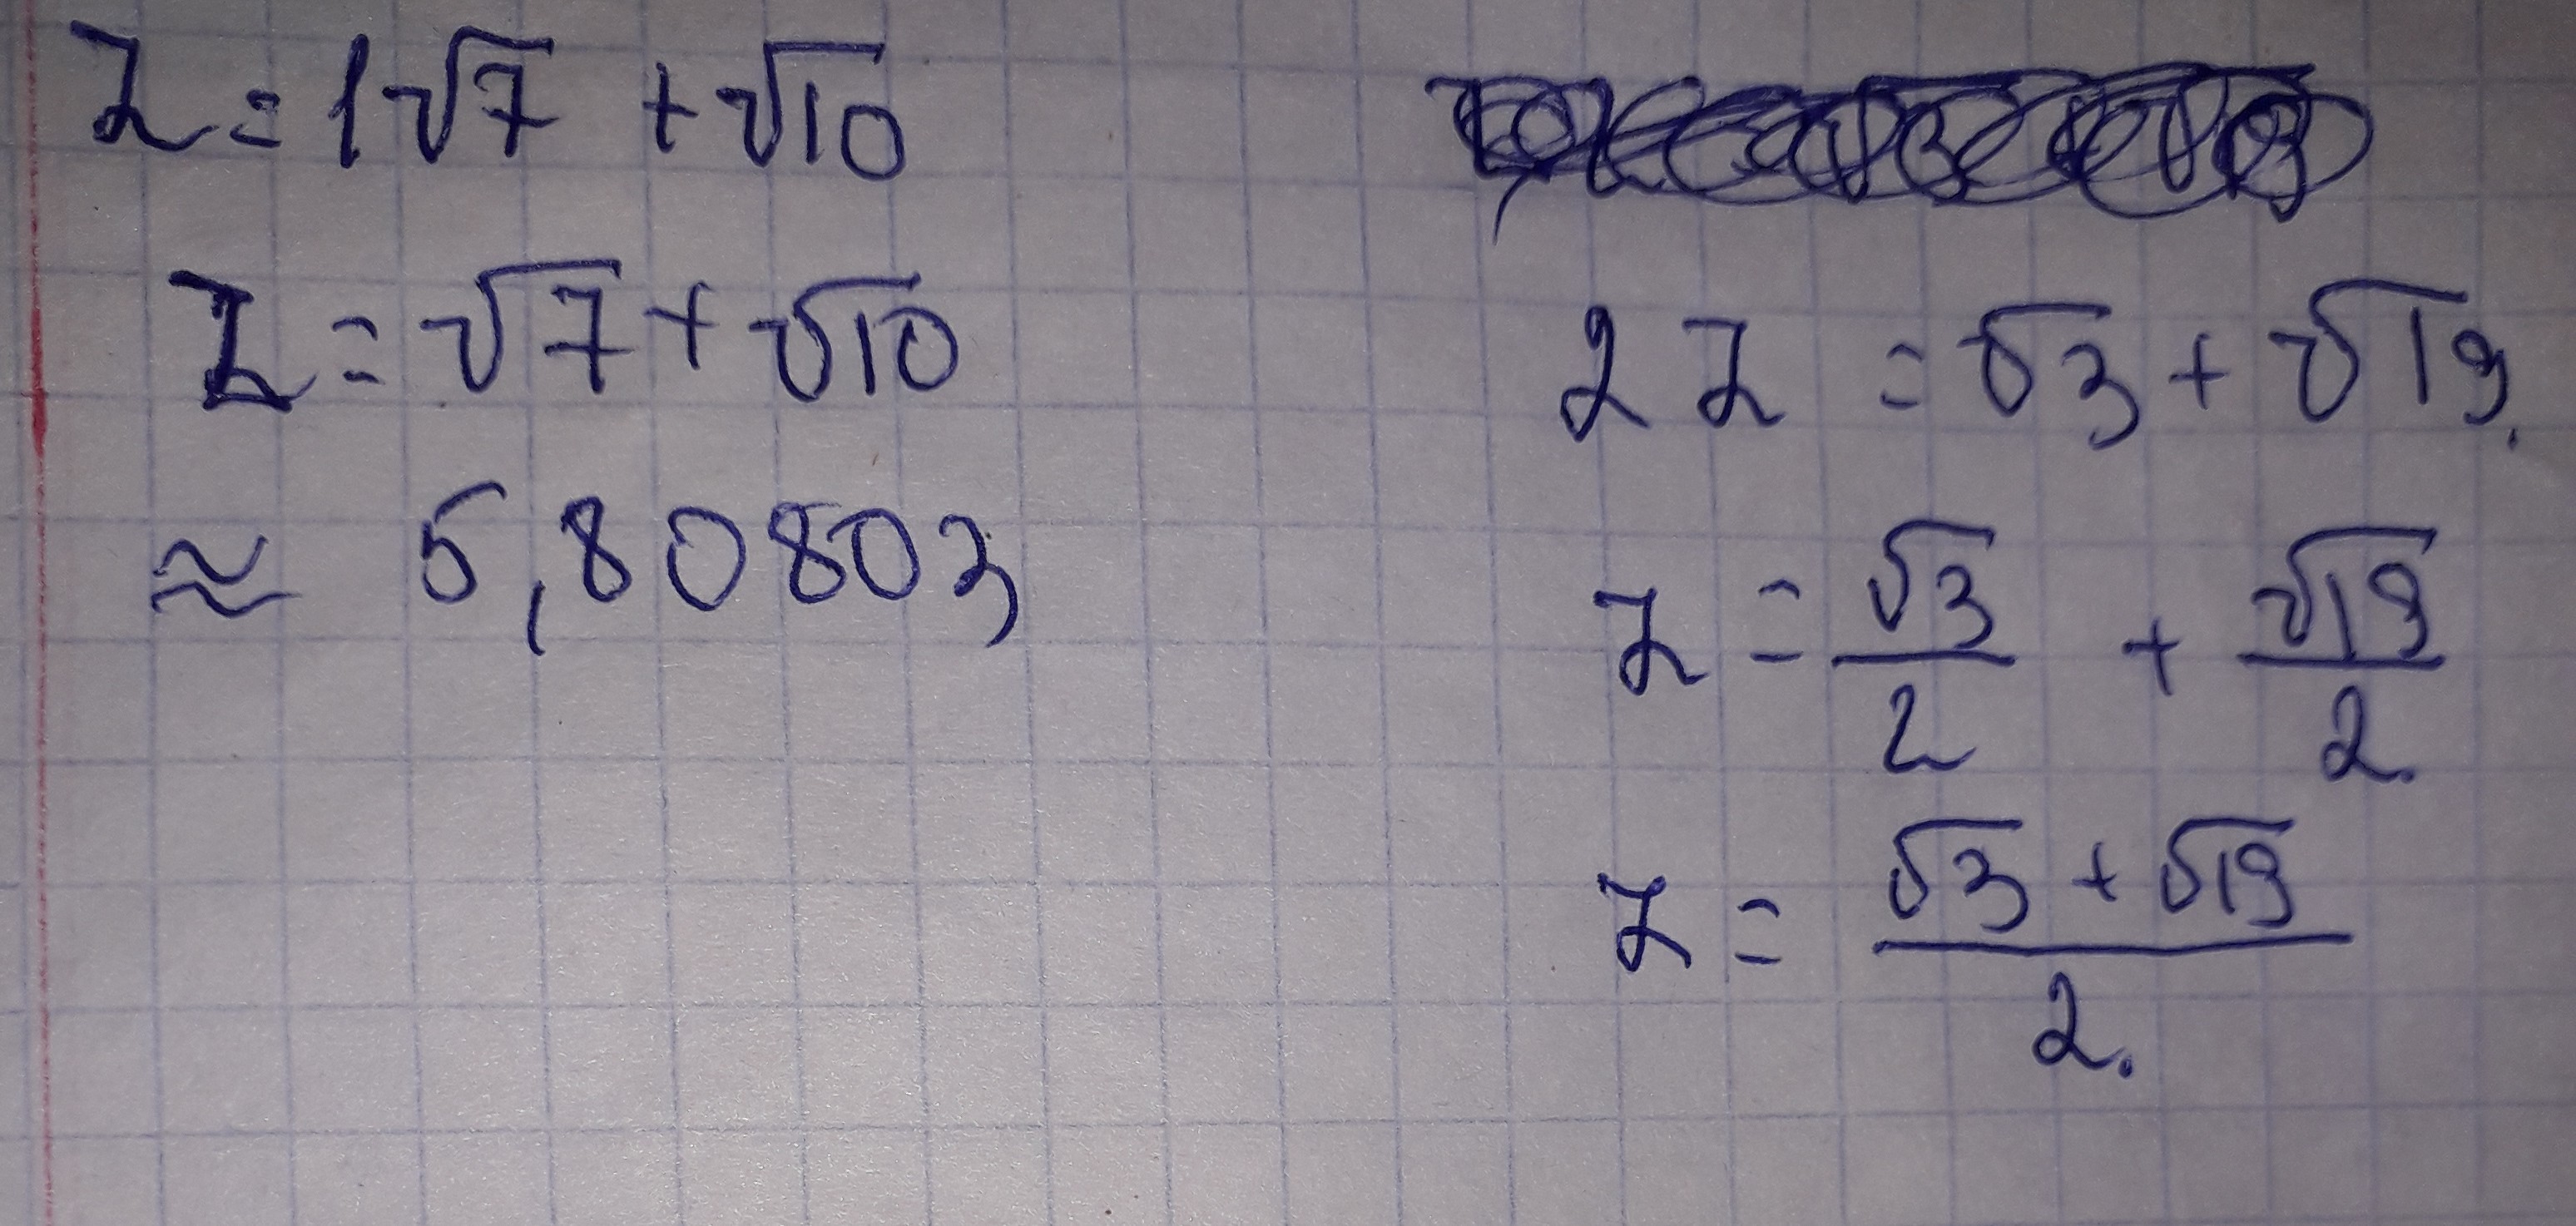 z = 1√7 + √10
z = √7 + √10
≈ 5,80803
2z = √3 + √19.
z = √3/2 + √19/2.
z = (√3 + √19)/2.